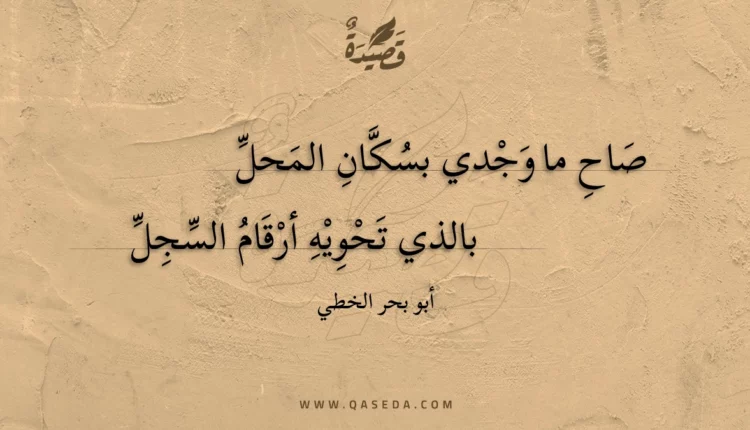 قَصِيْدَةٌ
صَاحِ ما وَجْدي بسُكَّانِ المَحلِّ
بالذي تَحْوِيْهِ أرْقَامُ السِّجِلِّ
أبو بحر الخطي
WWW.QASEDA.COM